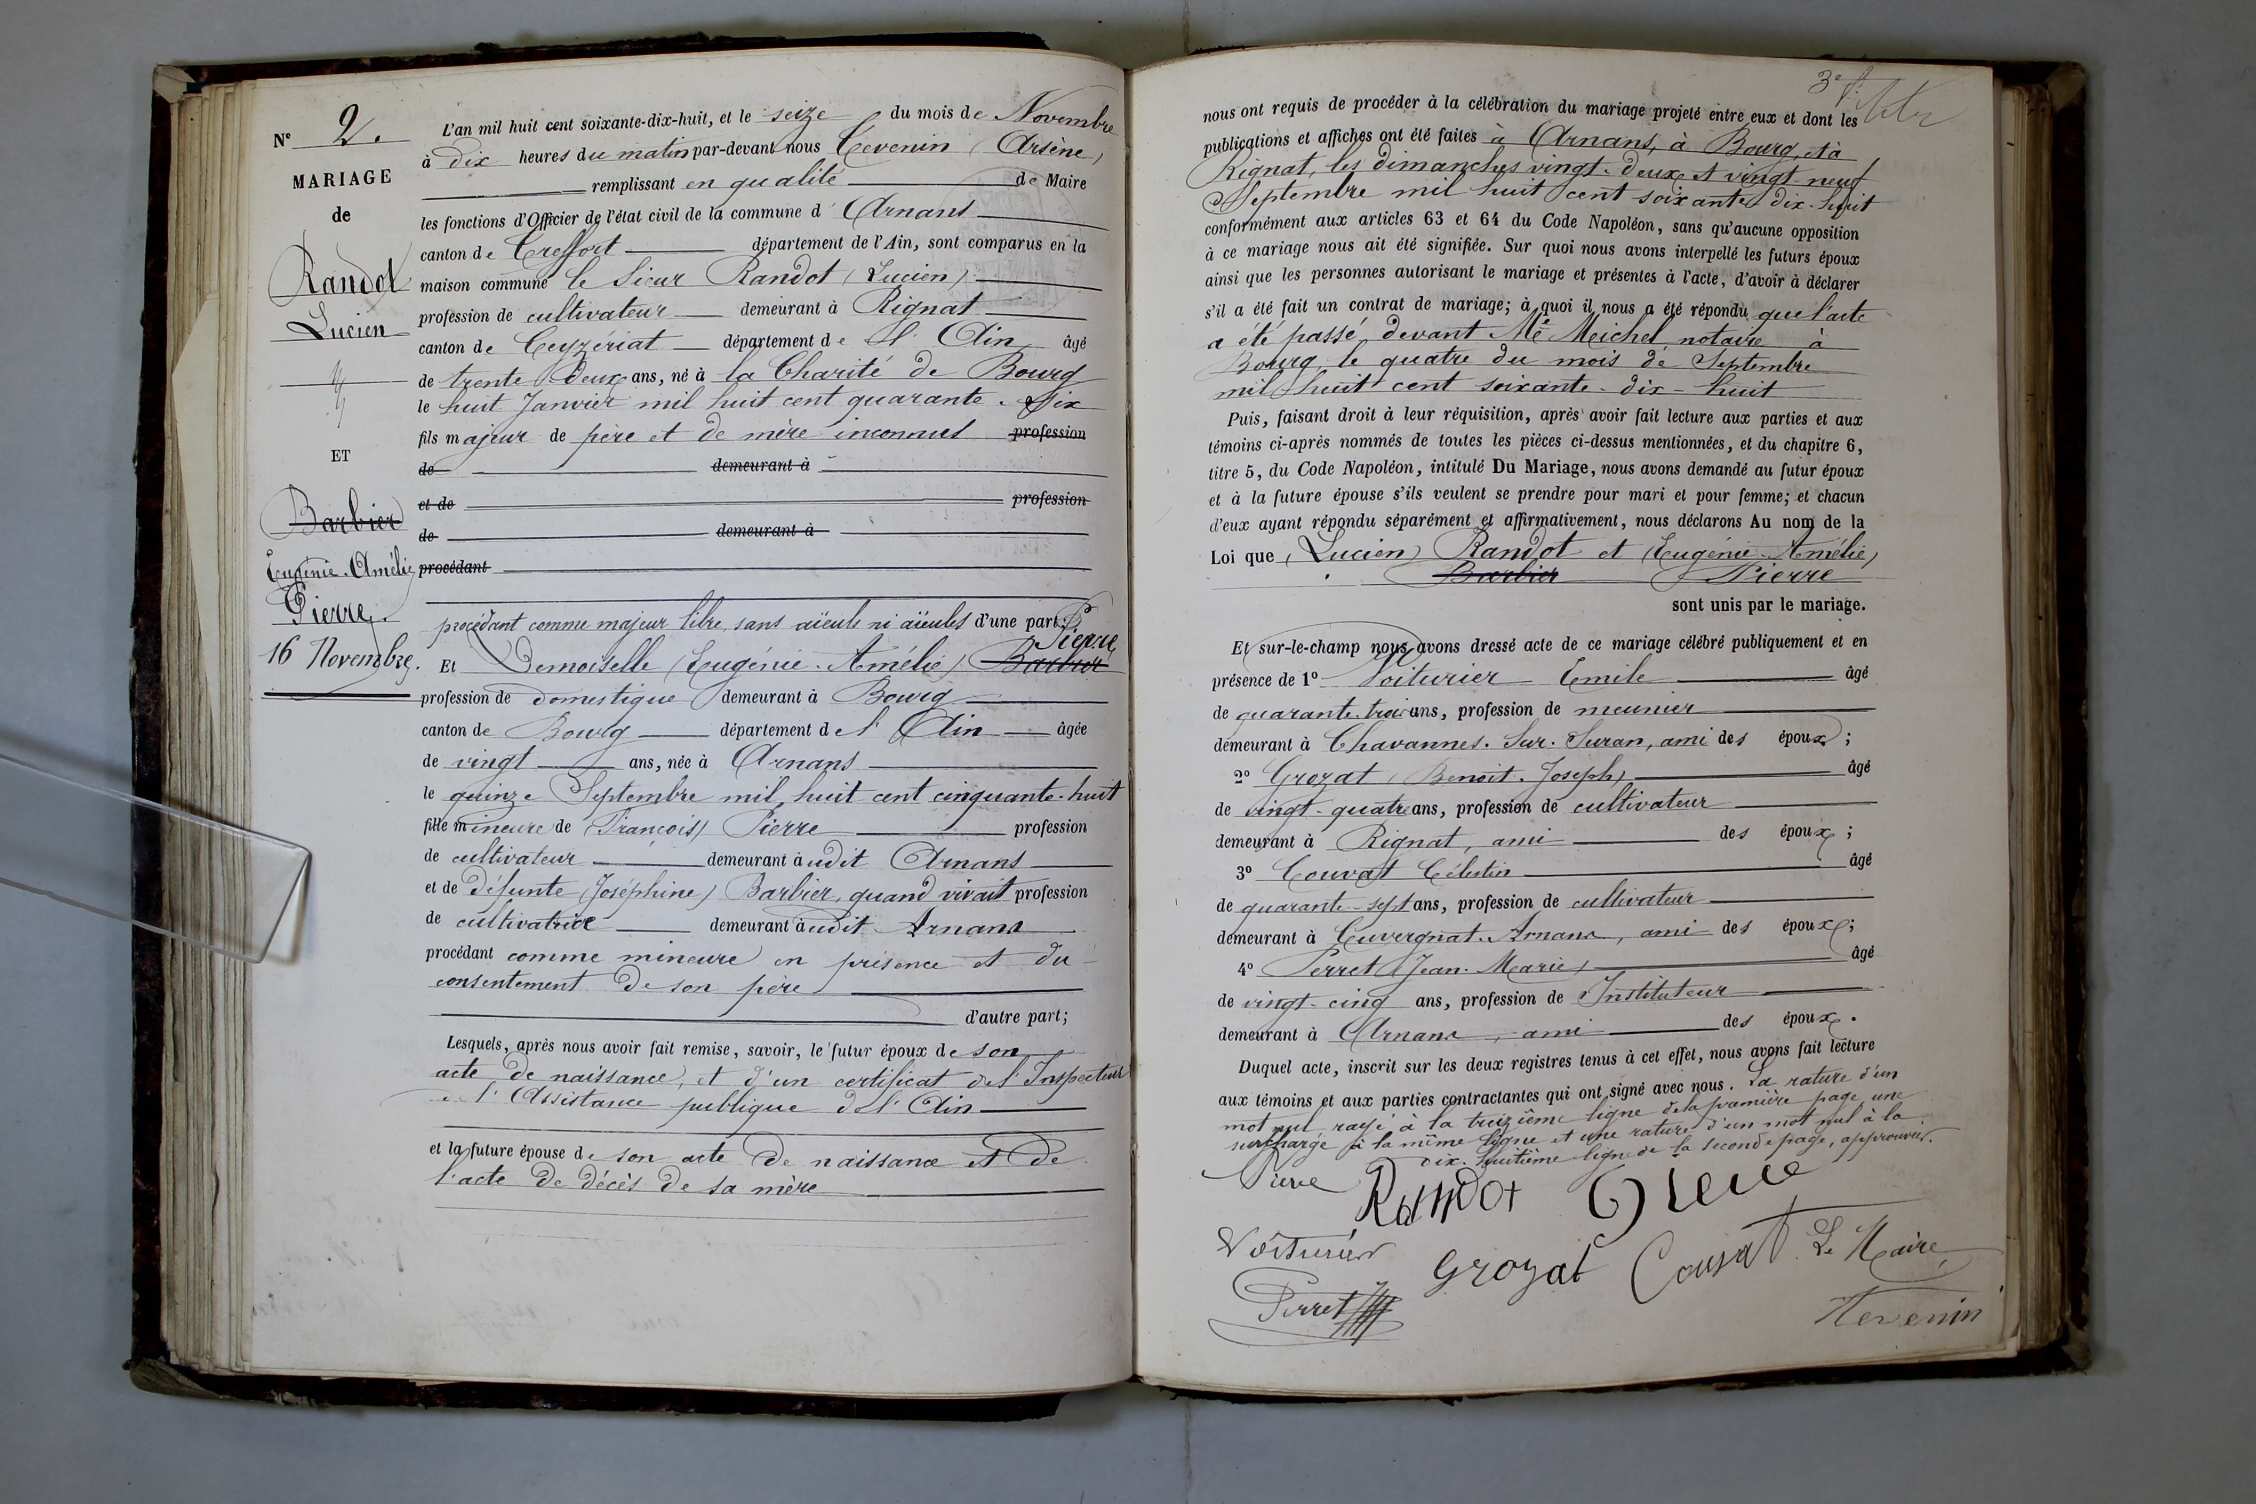 N° 2.
MARIAGE
de
Randot
Lucien
ET
Barbier
Eugénie-Amélie
Pierre.
16 Novembre.
L'an mil huit cent soixante-dix-huit, et le seize du mois de Novembre
à dix heures du matin par-devant nous Tevenin (Arsène)
remplissant en qualité de Maire
les fonctions d'Officier de l'état civil de la commune d'Arnans
canton de Treffort département de l'Ain, sont comparus en la
maison commune le sieur Randot (Lucien)
profession de cultivateur demeurant à Rignat
canton de Ceyzériat département de l'Ain âgé
de trente-deux ans, né à la Charité de Bourg
le huit Janvier mil huit cent quarante-six
fils majeur de père et de mère inconnus profession
de demeurant à
et de profession
de demeurant à
procédant
procédant comme majeur libre, sans aïeuls ni aïeules d'une part;
Pierre
Et Demoiselle (Eugénie-Amélie) Barbier
profession de domestique demeurant à Bourg
canton de Bourg département de l'Ain âgée
de vingt ans, née à Arnans
le quinze Septembre mil huit cent cinquante-huit
fille mineure de (François) Pierre profession
de cultivateur demeurant audit Arnans
et de défunte (Joséphine) Barbier, quand vivait profession
de cultivatrice demeurant audit Arnans
procédant comme mineure en présence et du
consentement de son père
d'autre part;
Lesquels, après nous avoir fait remise, savoir, le futur époux de son
acte de naissance, et d'un certificat de l'Inspecteur
de l'Assistance publique de l'Ain
et la future épouse de son acte de naissance et de
l'acte de décès de sa mère
3e f.
nous ont requis de procéder à la célébration du mariage projeté entre eux et dont les
publications et affiches ont été faites à Arnans, à Bourg, et à
Rignat, les dimanches vingt-deux et vingt-neuf
Septembre mil huit cent soixante-dix-huit
conformément aux articles 63 et 64 du Code Napoléon, sans qu'aucune opposition
à ce mariage nous ait été signifiée. Sur quoi nous avons interpellé les futurs époux
ainsi que les personnes autorisant le mariage et présentes à l'acte, d'avoir à déclarer
s'il a été fait un contrat de mariage; à quoi il nous a été répondu que l'acte
a été passé devant Me Meichel notaire à
Bourg le quatre du mois de Septembre
mil huit cent soixante-dix-huit
Puis, faisant droit à leur réquisition, après avoir fait lecture aux parties et aux
témoins ci-après nommés de toutes les pièces ci-dessus mentionnées, et du chapitre 6,
titre 5, du Code Napoléon, intitulé Du Mariage, nous avons demandé au futur époux
et à la future épouse s'ils veulent se prendre pour mari et pour femme; et chacun
d'eux ayant répondu séparément et affirmativement, nous déclarons Au nom de la
Loi que (Lucien) Randot et (Eugénie-Amélie)
Barbier Pierre
sont unis par le mariage.
Et sur-le-champ nous avons dressé acte de ce mariage célébré publiquement et en
présence de 1° Voiturier Emile âgé
de quarante-trois ans, profession de meunier
demeurant à Chavannes-Sur-Suran, ami des époux;
2° Grozat (Benoit-Joseph) âgé
de vingt-quatre ans, profession de cultivateur
demeurant à Rignat, ami des époux;
3° Couvat Célestin âgé
de quarante-sept ans, profession de cultivateur
demeurant à Cuvergnat-Arnans, ami des époux;
4° Perret (Jean-Marie) âgé
de vingt-cinq ans, profession de Instituteur
demeurant à Arnans, ami des époux.
Duquel acte, inscrit sur les deux registres tenus à cet effet, nous avons fait lecture
aux témoins et aux parties contractantes qui ont signé avec nous. La rature d'un
mot nul rayé à la treizième ligne de la première page, une
surcharge à la même ligne et une rature d'un mot nul à la
dix-huitième ligne de la seconde page, approuvés.
Pierre Randot Pierre
Voiturier Grozat Couvat Le Maire
Perret Tevenin